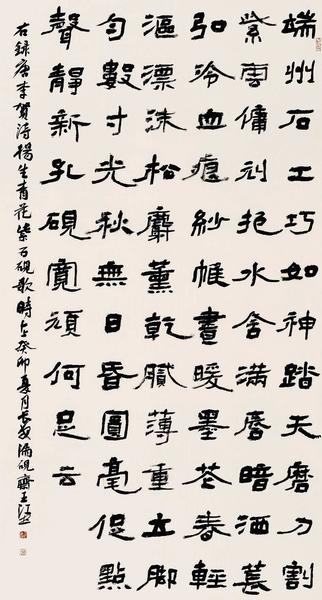 端州石工巧如神踏天磨刀割
紫雲傭刓抱水含滿唇暗洒萇
弘冷血痕紗帷晝暖墨花春輕
漚漂沫松麝薰乾膩薄重立脚
勻數寸光秋無日昏圓毫促點
聲靜新孔硯寬頑何足云
右録唐李賀詩楊生青花紫石硯歌時在癸卯夏月長安硯齋王